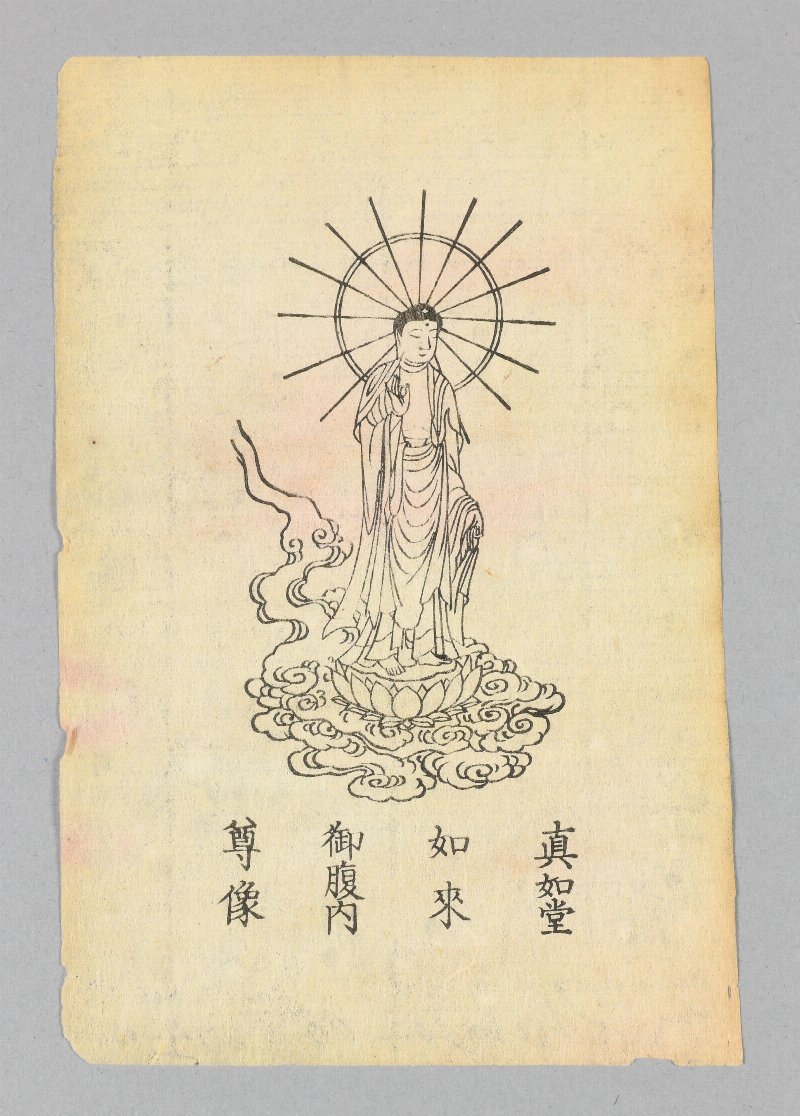 真如堂
如來
御腹内
尊像